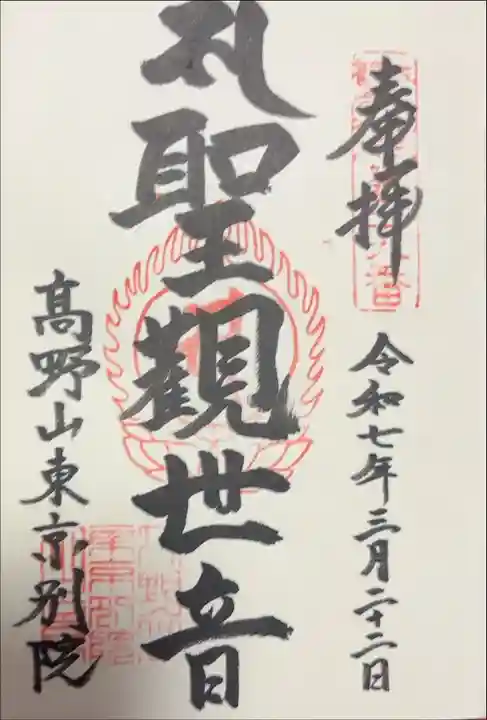 奉拝
令和七年三月二十二日
聖觀世音
髙野山東京別院